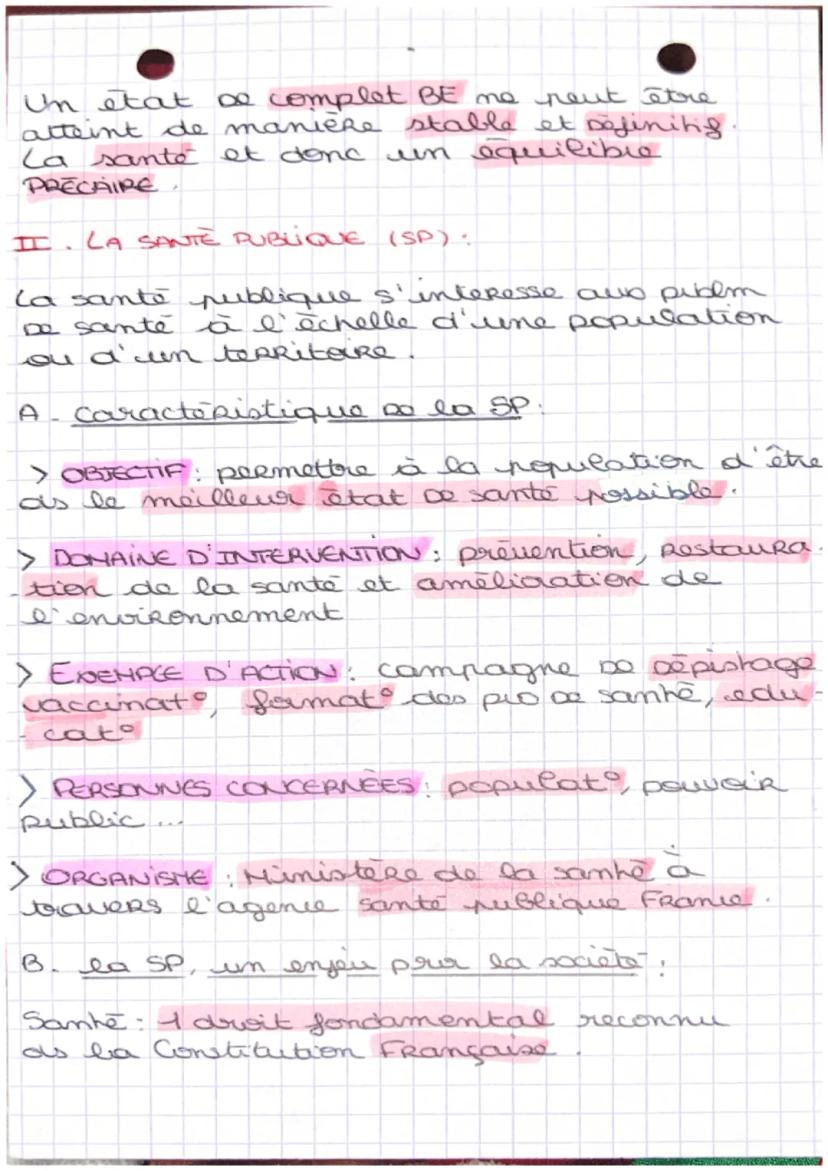 Un état de complet BE ne peut être
atteint de manière stable et définitif.
La santé et donc un équilibre
PRÉCAIRE.
II. LA SANTÉ PUBLIQUE (SP) :
La santé publique s'interesse aux publem
de santé à l'échelle d'une population
ou d'un territoire.
A - caractéristique de la SP :
> OBJECTIF : permettre à la population d'être
ds le meilleur état de santé possible.
> DOMAINE D'INTERVENTION : prévention, restaura-
-tion de la santé et amélioration de
l'environnement
> EXEMPLE D'ACTION : campagne de dépistage
vaccinat°, format° des pro de santé, edu-
-cat°
> PERSONNES CONCERNÉES : populat°, pouvoir
public ...
> ORGANISME : Ministère de la santé à
travers l'agence santé publique France.
B. la SP, un enjeu pour la société :
Santé : 1 droit fondamental reconnu
ds la Constitution Française.